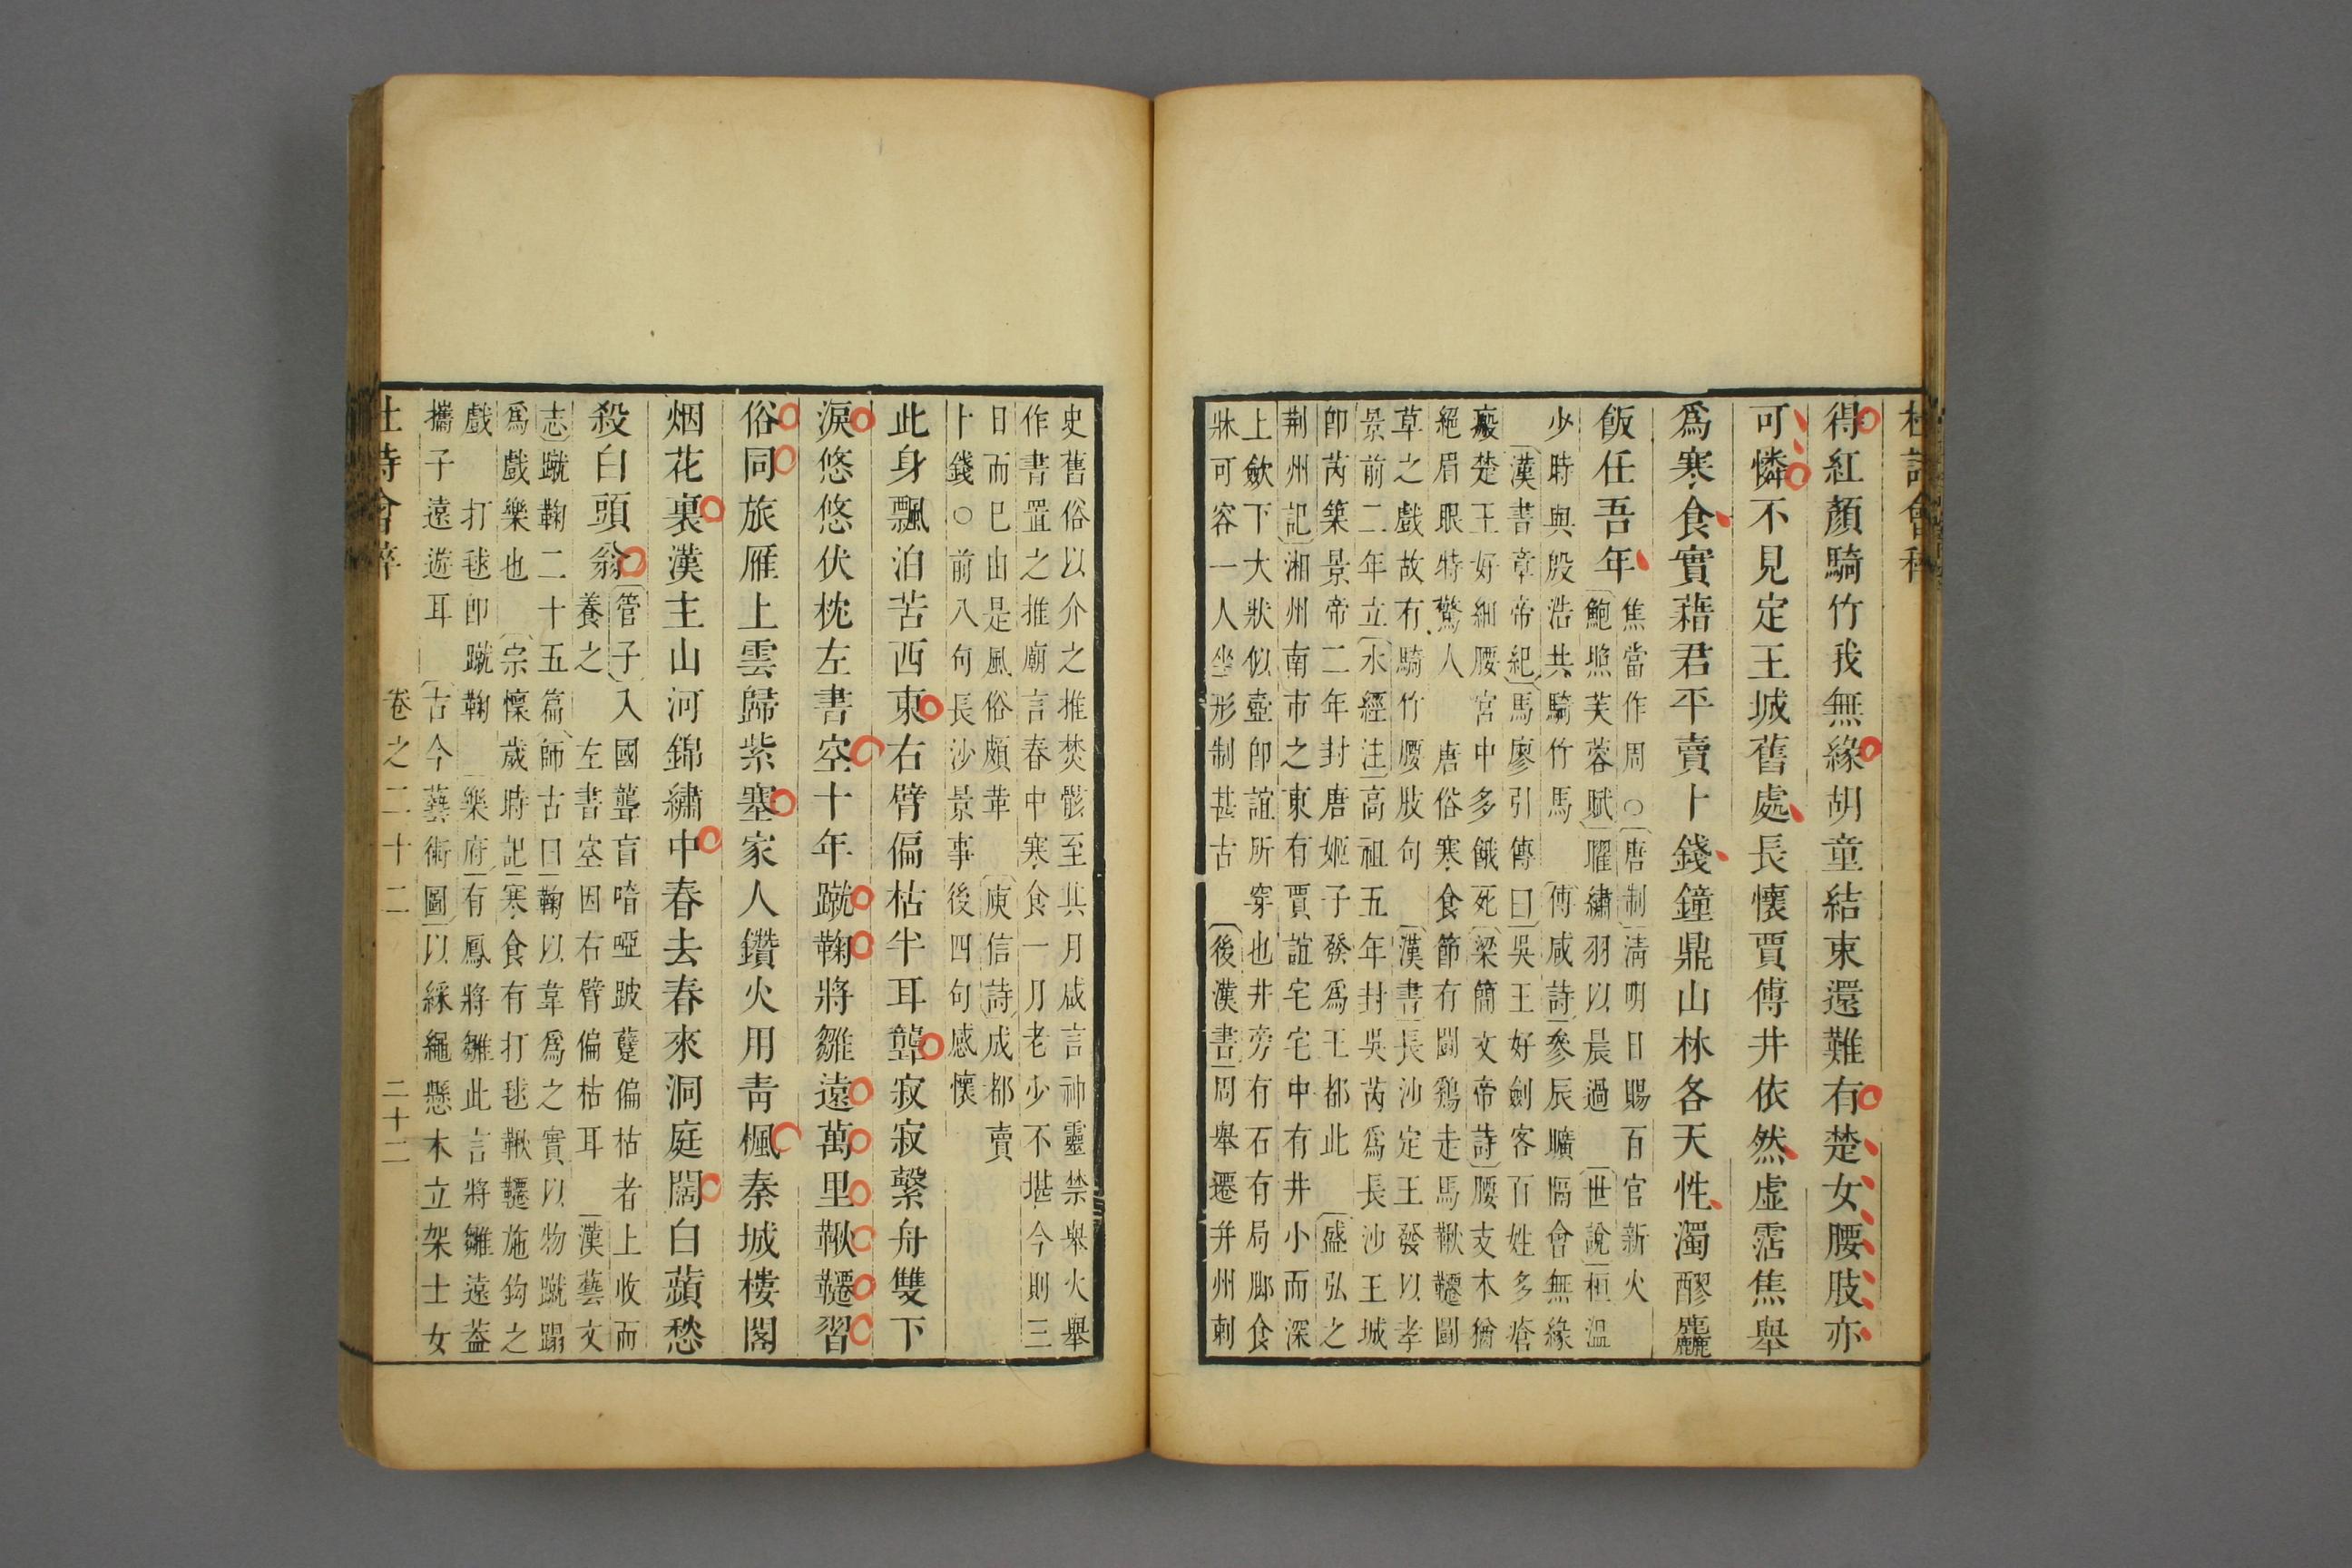 杜詩會稡
得紅顏騎竹我無緣胡童結束還難有楚女腰肢亦
可憐不見定王城舊處長懷賈傅井依然虛霑焦舉
爲寒食實藉君平賣卜錢鐘鼎山林各天性濁醪麤
飯任吾年
焦當作周○唐制清明日賜百官新火
鮑照芙蓉賦曜繡羽以晨過 世說桓溫
少時與殷浩共騎竹馬 傅咸詩參辰曠隔會無緣
漢書章帝紀馬廖引傳曰吳王好劍客百姓多瘡
瘢楚王好細腰宮中多餓死梁簡文帝詩腰支木猶
絕眉眼特驚人 唐俗寒食節有鬪鷄走馬鞦韆鬪
草之戲故有騎竹腰肢句 漢書長沙定王發以孝
景前二年立水經注高祖五年封吳芮爲長沙王城
卽芮築景帝二年封唐姬子發爲王都此 盛弘之
荆州記湘州南市之東有賈誼宅宅中有井小而深
上斂下大狀似壺卽誼所穿也井旁有石有局脚食
牀可容一人坐形制甚古 後漢書周舉遷幷州刺
史舊俗以介之推焚骸至其月咸言神靈禁舉火舉
作書置之推廟言春中寒食一月老少不堪今則三
日而已由是風俗頗革 庾信詩成都賣
卜錢○前八句長沙景事後四句感懷
此身飄泊苦西東右臂偏枯半耳聾寂寂繫舟雙下
淚悠悠伏枕左書空十年蹴鞠將雛遠萬里鞦韆習
俗同旅雁上雲歸紫塞家人鑽火用青楓秦城樓閣
烟花裏漢主山河錦繡中春去春來洞庭闊白蘋愁
殺白頭翁
管子入國聾盲喑啞跛躄偏枯者上收而
養之 左書空因右臂偏枯耳 漢藝文
志蹴鞠二十五篇師古曰鞠以韋爲之實以物蹴蹋
爲戲樂也 宗懍歲時記寒食有打毬鞦韆施鈎之
戲 打毬卽蹴鞠 樂府有鳳將雛此言將雛遠葢
攜子遠遊耳 古今藝術圖以綵繩懸木立架士女
杜詩會稡 卷之二十二 二十二